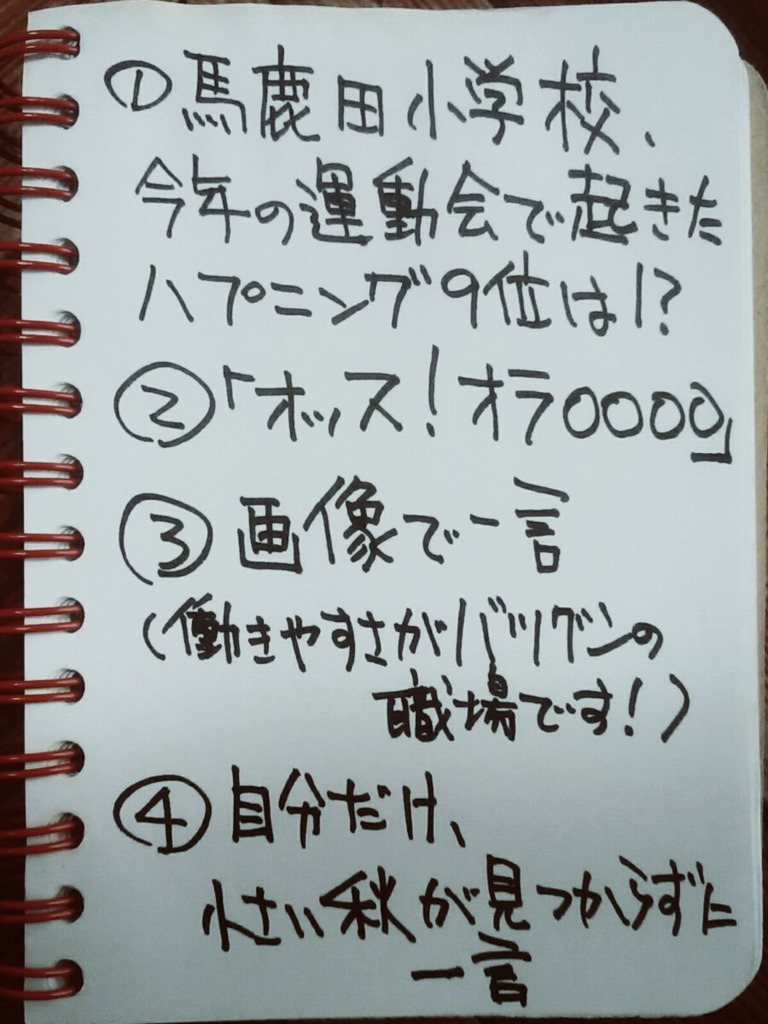 ① 馬鹿田小学校、
今年の運動会で起きた
ハプニング9位は!?
②「オッス!オラ○○○○」
③ 画像で一言
(働きやすさがバツグンの
職場です!)
④ 自分だけ、
小さい秋が見つからずに
一言